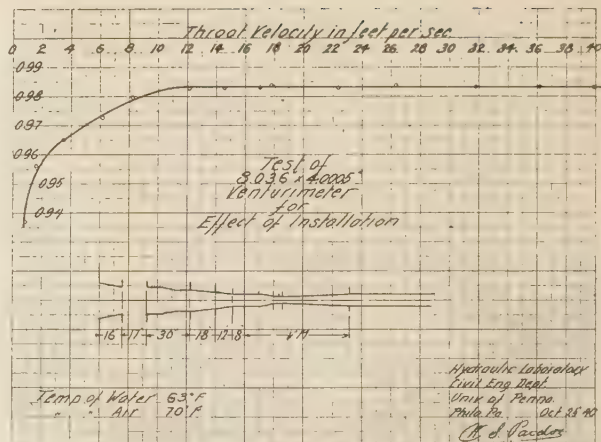 Throat Velocity in feet per sec.
0 2 4 6 8 10 12 14 16 18 20 22 24 26 28 30 32 34 36 38 40
0.99
0.98
0.97
0.96
0.95
0.94
Test of
8.036 x 4.0005"
Venturimeter
for
Effect of Installation
16 17 30 18 12 8 V.M.
Temp of Water 63°F
" " Air 70°F
Hydraulic Laboratory
Civil Eng Dept
Univ of Penna.
Phila. Pa. Oct 25 40
W. S. Pardoe